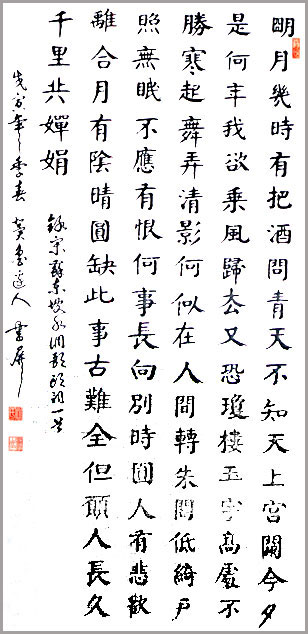 明月幾時有把酒問青天不知天上宮闕今夕
是何年我欲乘風歸去又恐瓊樓玉宇高處不
勝寒起舞弄清影何似在人間轉朱閣低綺戶
照無眠不應有恨何事長向別時圓人有悲歡
離合月有陰晴圓缺此事古難全但願人長久
千里共嬋娟
錄宋蘇東坡水調歌頭詞一首
年季春 道人書